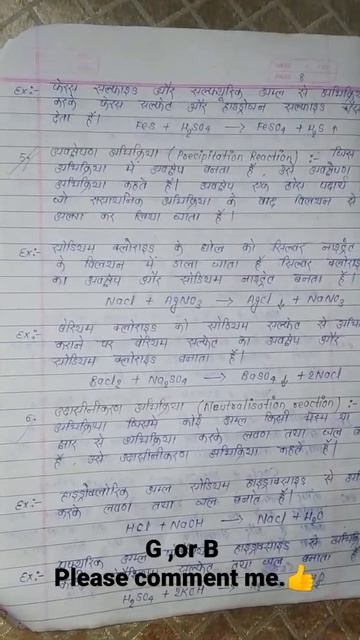 8
Ex:- फेरस सल्फाइड और सल्फ्यूरिक अम्ल से अभिक्रिया
करके फेरस सल्फेट और हाइड्रोजन सल्फाइड
देता है।
FeS + H₂SO₄ → FeSO₄ + H₂S ↑
5. अवक्षेपण अभिक्रिया (Precipitation Reaction) :- जिस
अभिक्रिया में अवक्षेप बनता है, उसे अवक्षेपण
अभिक्रिया कहते हैं। अवक्षेप एक ठोस पदार्थ
जो रासायनिक अभिक्रिया के बाद विलयन से
अलग कर लिया जाता है।
Ex:- सोडियम क्लोराइड के घोल को सिल्वर नाइट्रेट
के विलयन में डाला जाता है सिल्वर क्लोराइड
का अवक्षेप और सोडियम नाइट्रेट बनता है।
NaCl + AgNO₃ → AgCl↓ + NaNO₃
Ex:- बेरियम क्लोराइड को सोडियम सल्फेट से
कराने पर बेरियम सल्फेट का अवक्षेप और
सोडियम क्लोराइड बनाता है।
BaCl₂ + Na₂SO₄ → BaSO₄↓ + 2NaCl
6. उदासीनीकरण अभिक्रिया (Neutralisation reaction) :-
अभिक्रिया जिसमें कोई अम्ल किसी भस्म या
क्षार से अभिक्रिया करके लवण तथा जल
है, उसे उदासीनीकरण अभिक्रिया कहते हैं।
Ex:- हाइड्रोक्लोरिक अम्ल सोडियम हाइड्रॉक्साइड से
करके लवण तथा जल बनाते हैं।
HCl + NaOH → NaCl + H₂O
G ,or B
Ex:- अम्ल हाइड्रॉक्साइड से
Please comment me.👍
सल्फेट तथा जल बनाता है
H₂SO₄ + 2KOH